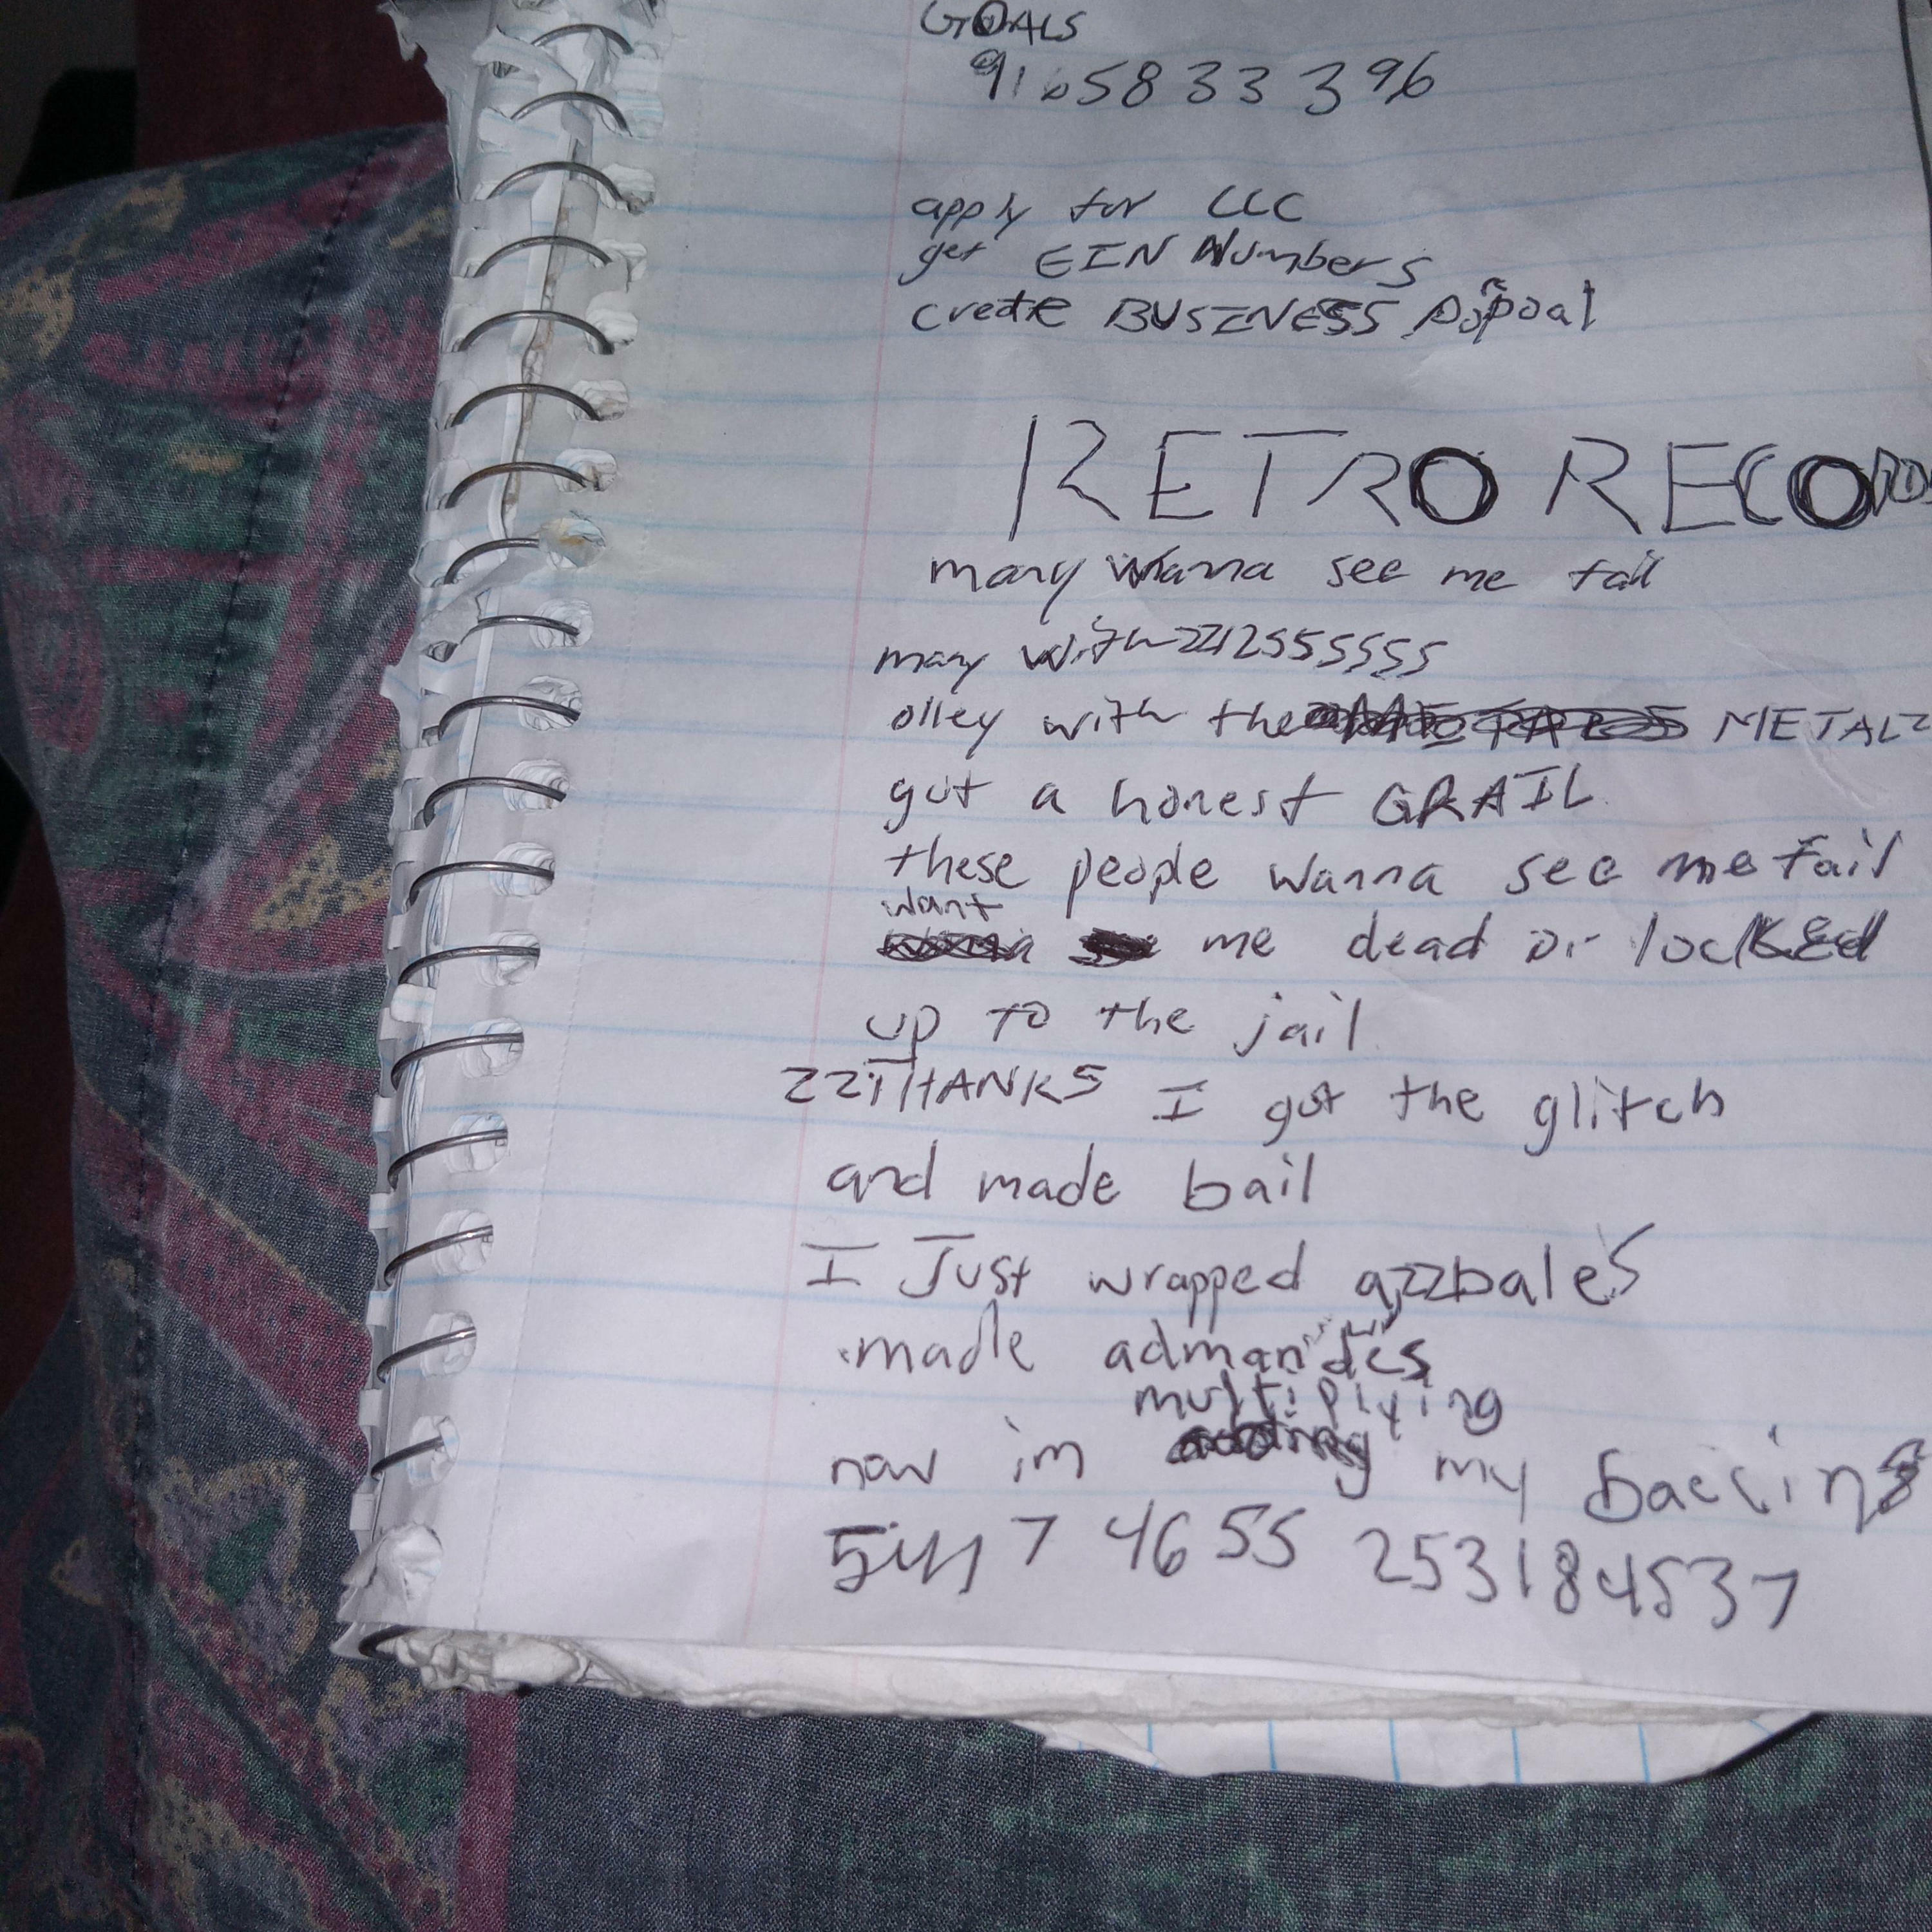 GOALS
9165833396
apply for LLC
get EIN Numbers
create BUSINESS
RETRO RECORDS
many wanna see me fail
many with 2212555555
olley with the METALZ
got a honest GRAIL
these people wanna see me fail
want
me dead or locked
up to the jail
ZZTHANKS I got the glitch
and made bail
I Just wrapped azzbales
made
multiplying
now im my
7 4655 2531184537